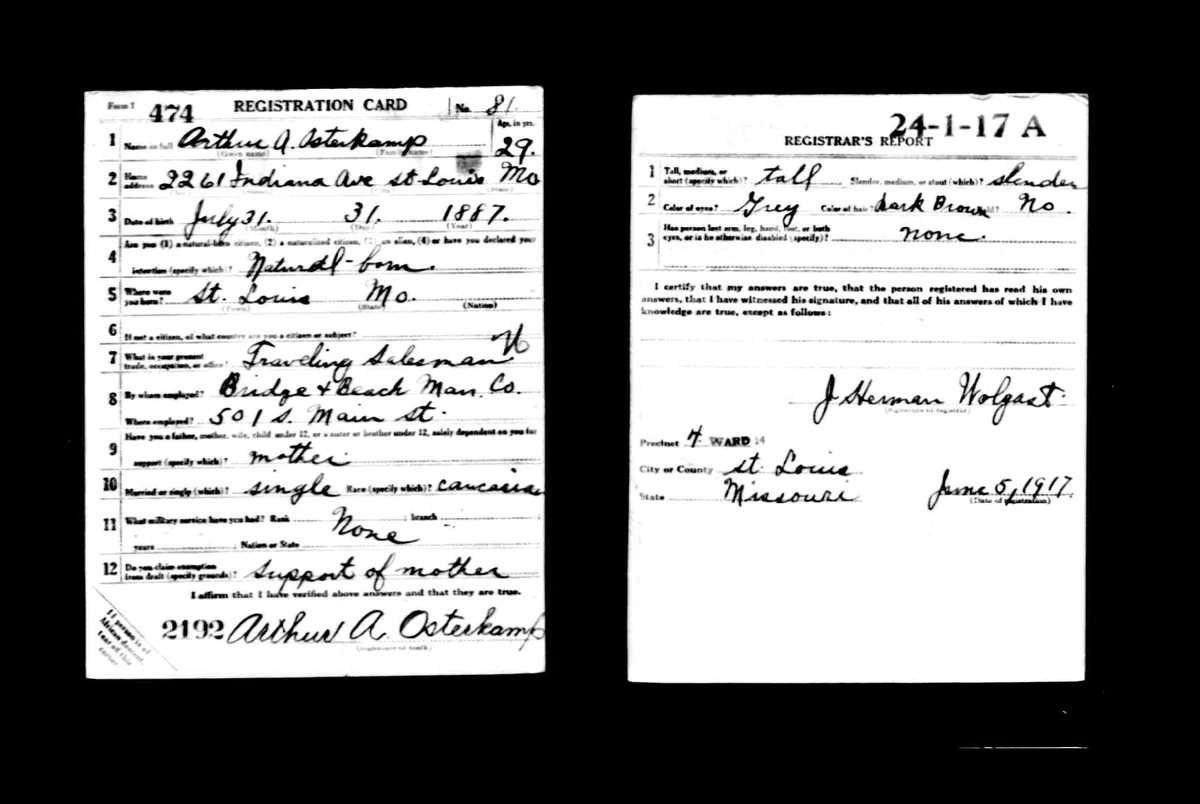 Form 1 474 REGISTRATION CARD No. 81
1 Name in full Arthur A. Osterkamp Age, in yrs. 29.
(Given name) (Family name)
2 Home address 2261 Indiana Ave St. Louis Mo
3 Date of birth July 31. 31. 1887.
(Month) (Day) (Year)
4 Are you (1) a natural-born citizen, (2) a naturalized citizen, (3) an alien, (4) or have you declared your
intention (specify which)? Natural-born.
5 Where were you born? St. Louis Mo.
(Town) (State) (Nation)
6 If not a citizen, of what country are you a citizen or subject?
7 What is your present trade, occupation, or office? Traveling Salesman
8 By whom employed? Bridge & Beach Man. Co.
Where employed? 501 S. Main St.
9 Have you a father, mother, wife, child under 12, or a sister or brother under 12, solely dependent on you for
support (specify which)? mother
10 Married or single (which)? single Race (specify which)? Caucasian
11 What military service have you had? Rank ; branch
years ; Nation or State None
12 Do you claim exemption from draft (specify grounds)? Support of mother
I affirm that I have verified above answers and that they are true.
2192 Arthur A. Osterkamp
(Signature or mark)
If person is of
African descent,
tear off this
corner
24-1-17 A
REGISTRAR'S REPORT
1 Tall, medium, or short (specify which)? tall Slender, medium, or stout (which)? slender
2 Color of eyes? Grey Color of hair? Dark Brown No.
3 Has person lost arm, leg, hand, foot, or both eyes, or is he otherwise disabled (specify)? none.
I certify that my answers are true, that the person registered has read his own
answers, that I have witnessed his signature, and that all of his answers of which I have
knowledge are true, except as follows:
J Herman Wolgast.
(Signature of registrar)
Precinct 4 WARD 14
City or County St. Louis
State Missouri June 5, 1917.
(Date of registration)